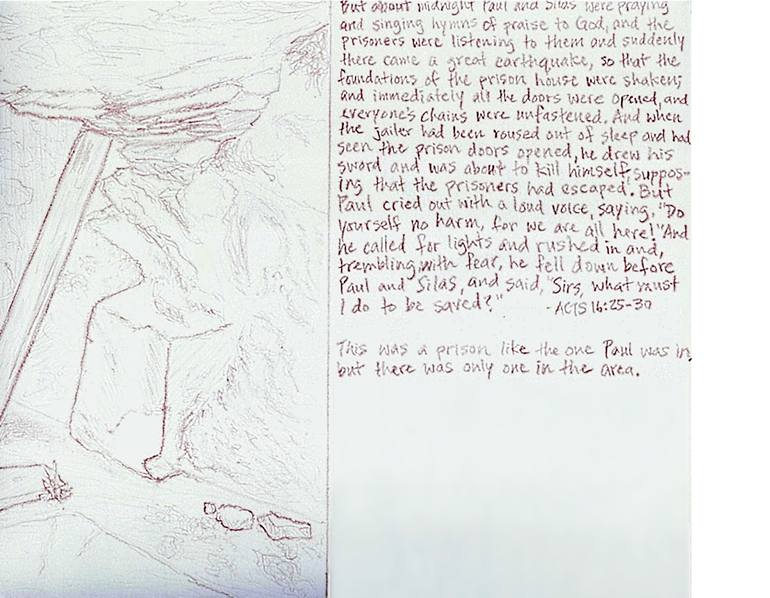 But about midnight Paul and Silas were praying
and singing hymns of praise to God, and the
prisoners were listening to them and suddenly
there came a great earthquake, so that the
foundations of the prison house were shaken;
and immediately all the doors were opened, and
everyone's chains were unfastened. And when
the jailer had been roused out of sleep and had
seen the prison doors opened, he drew his
sword and was about to kill himself, suppos-
ing that the prisoners had escaped. But
Paul cried out with a loud voice, saying, "Do
yourself no harm, for we are all here!" And
he called for lights and rushed in and,
trembling with fear, he fell down before
Paul and Silas, and said, "Sirs, what must
I do to be saved?" - ACTS 16:25-30
This was a prison like the one Paul was in,
but there was only one in the area.